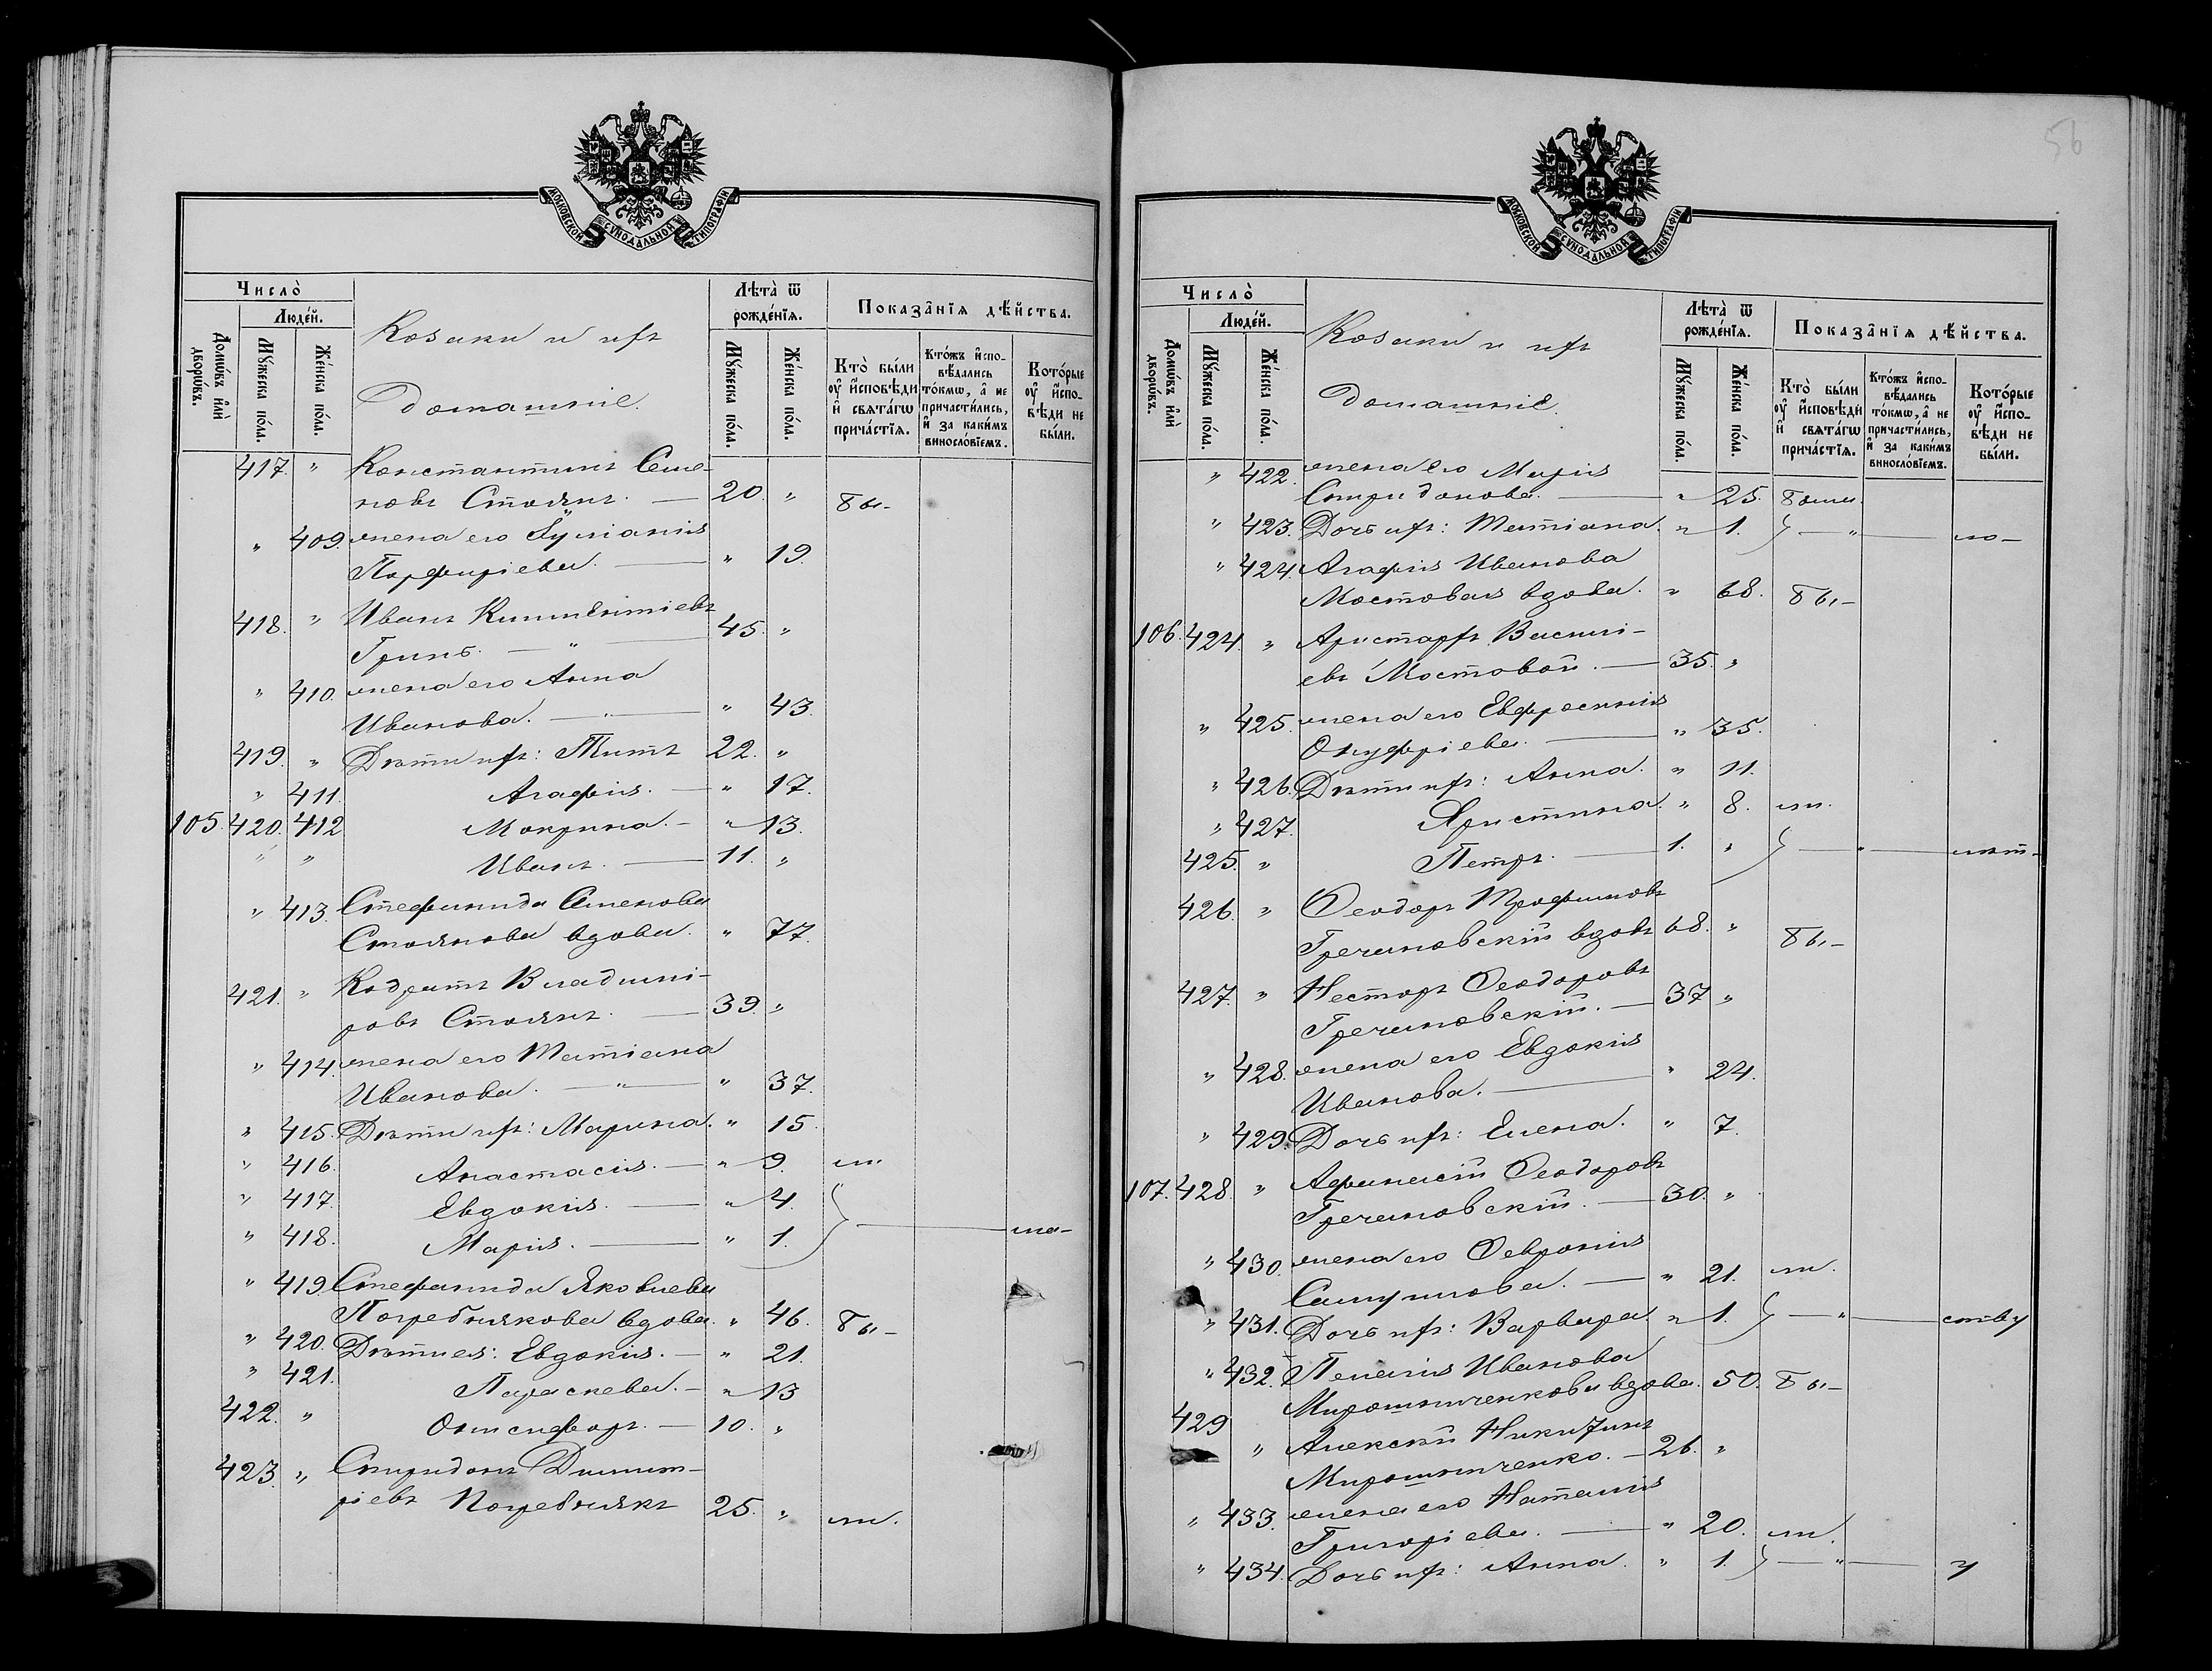 56
МОСКОВСКОЙ СѴНОДАЛЬНОЙ ТИПОГРАФІИ
Число̀
Людє́й.
Домѡ́въ и҆лѝ дворѡ́въ.
Мꙋ́жеска по́ла.
Же́нска по́ла.
Козаки и ихъ
Домашніе.
Лѣта̀ ѿ рожде́нїѧ.
Мꙋ́жеска по́ла.
Же́нска по́ла.
Показа̑нїѧ дѣ́йства.
Кто̀ бы́ли оу҆ и҆сповѣ́ди и҆ свѧта́гѡ прича́стїѧ.
Кто́жъ и҆спо-вѣ́дались то́кмѡ, а҆ не причасти́лись, и҆ за каки́мъ винослóвїемъ.
Кото́рые оу҆ и҆спо-вѣ́ди не бы́ли.
417. " Константинъ Семе-
новъ Столянъ. — 20. " бы-
" 409. жена его Іуліанія
Порфиріева. — " 19.
418. " Иванъ Климентіевъ
Гринь. — " — 45. "
" 410. жена его Анна
Иванова. — " — " 43.
419. " Дѣти ихъ: Титъ 22. "
" 411. Агафія. — " 17.
105. 420. 412 Макрина. — " 13.
" " Иванъ. — 11. "
" 413. Стефанида Семенова
Столянова вдова. " 77.
421. " Кодратъ Владимі-
ровъ Столянъ. — 39. "
" 414. жена его Татіана
Иванова. — " — " 37.
" 415. Дѣти ихъ: Марина. " 15.
" 416. Анастасія. — " 9. ли
" 417. Евдокія. — " 4.
" 418. Марія. — " 1. } — ма-
" 419. Стефанида Яковлева
Погребнякова вдова. " 46. бы-
" 420. Дѣти ея: Евдокія. — " 21.
" 421. Параскева. — " 13
422. " Онисифоръ. — 10. "
423. " Спиридонъ Димит-
ріевъ Погребнякъ 25. " ли.
МОСКОВСКОЙ СѴНОДАЛЬНОЙ ТИПОГРАФІИ
Число̀
Людє́й.
Домѡ́въ и҆лѝ дворѡ́въ.
Мꙋ́жеска по́ла.
Же́нска по́ла.
Козаки и ихъ
Домашніе.
Лѣта̀ ѿ рожде́нїѧ.
Мꙋ́жеска по́ла.
Же́нска по́ла.
Показа̑нїѧ дѣ́йства.
Кто̀ бы́ли оу҆ и҆сповѣ́ди и҆ свѧта́гѡ прича́стїѧ.
Кто́жъ и҆спо-вѣ́дались то́кмѡ, а҆ не причасти́лись, и҆ за каки́мъ винослóвїемъ.
Кото́рые оу҆ и҆спо-вѣ́ди не бы́ли.
" 422. жена его Марія
Спиридонова. — " 25. были.
" 423. Дочь ихъ: Татіана. " 1. } — " — ло-
" 424. Агафія Иванова
Мостовая вдова. " 68. бы-
106. 424. " Аристархъ Василі-
евъ Мостовой. — 35. "
" 425. жена его Евфросинія
Онуфріева. — " 35.
" 426. Дѣти ихъ: Анна. " 11.
" 427. Христина. " 8. ли.
425. " Петръ. — 1. " } — " — лѣт-
426. " Ѳеодоръ Трофимовъ
Гречановскій вдовъ 68. " бы-
427. " Несторъ Ѳеодоровъ
Гречановскій. — 37 "
" 428. жена его Евдокія
Иванова. — " 24.
" 429. Дочь ихъ: Елена. " 7.
107. 428. " Афанасій Ѳеодоровъ
Гречановскій. — 30. "
" 430. жена его Ѳевронія
Самуилова. — " 21. ли.
" 431. Дочь ихъ: Варвара. " 1. } — " — ству
" 432. Пелагія Иванова
Мирошниченкова вдова. 50. бы-
429 " Алексій Никитинъ
Мирошниченко. — 26. "
" 433. жена его Наталія
Григоріева. — " 20. ли.
" 434. Дочь ихъ: Анна. " 1. } — " — у